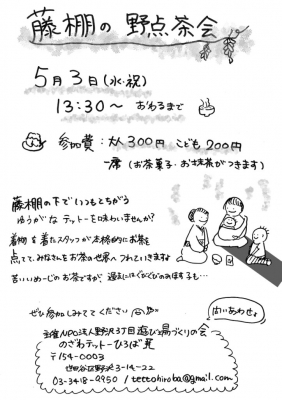 藤棚の 野点茶会
5月3日(水・祝)
13:30〜 おわるまで
参加費：大人300円 こども200円
一席(お茶菓子・お抹茶がつきます)
藤棚の下でいつもとちがう
ゆうがな テットーを味わいませんか?
着物を着たスタッフが本格的にお茶を
点てて、みなさんをお茶の世界へつれていきます
苦いいめーじのお茶ですが、過去には
ぜひ参加してみてください
はいあわせ
主催NPO法人野沢3丁目遊び場づくりの会
のざわテットーひろば
〒154-0003
世田谷区野沢3-14-22
03-3418-9950 / tettohiroba@gmail.com